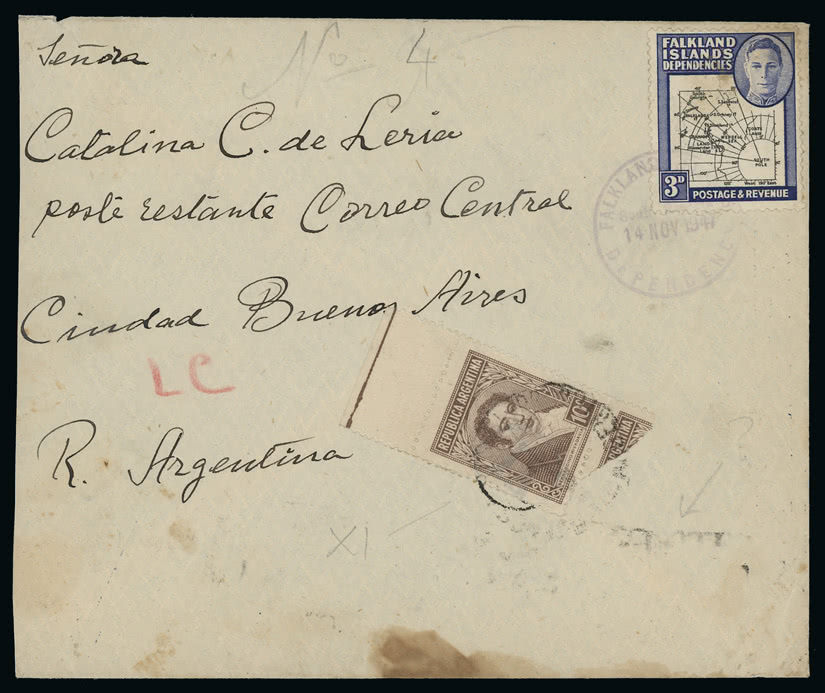 Señora
No 4
Catalina C. de Leria
poste restante Correo Central
Ciudad Buenos Aires
LC
R. Argentina
XI
?
FALKLAND
ISLANDS
DEPENDENCIES
SOUTH POLE
3D
POSTAGE & REVENUE
FALKLAND
14 NOV 1947
DEPENDENC
REPUBLICA ARGENTINA
10c